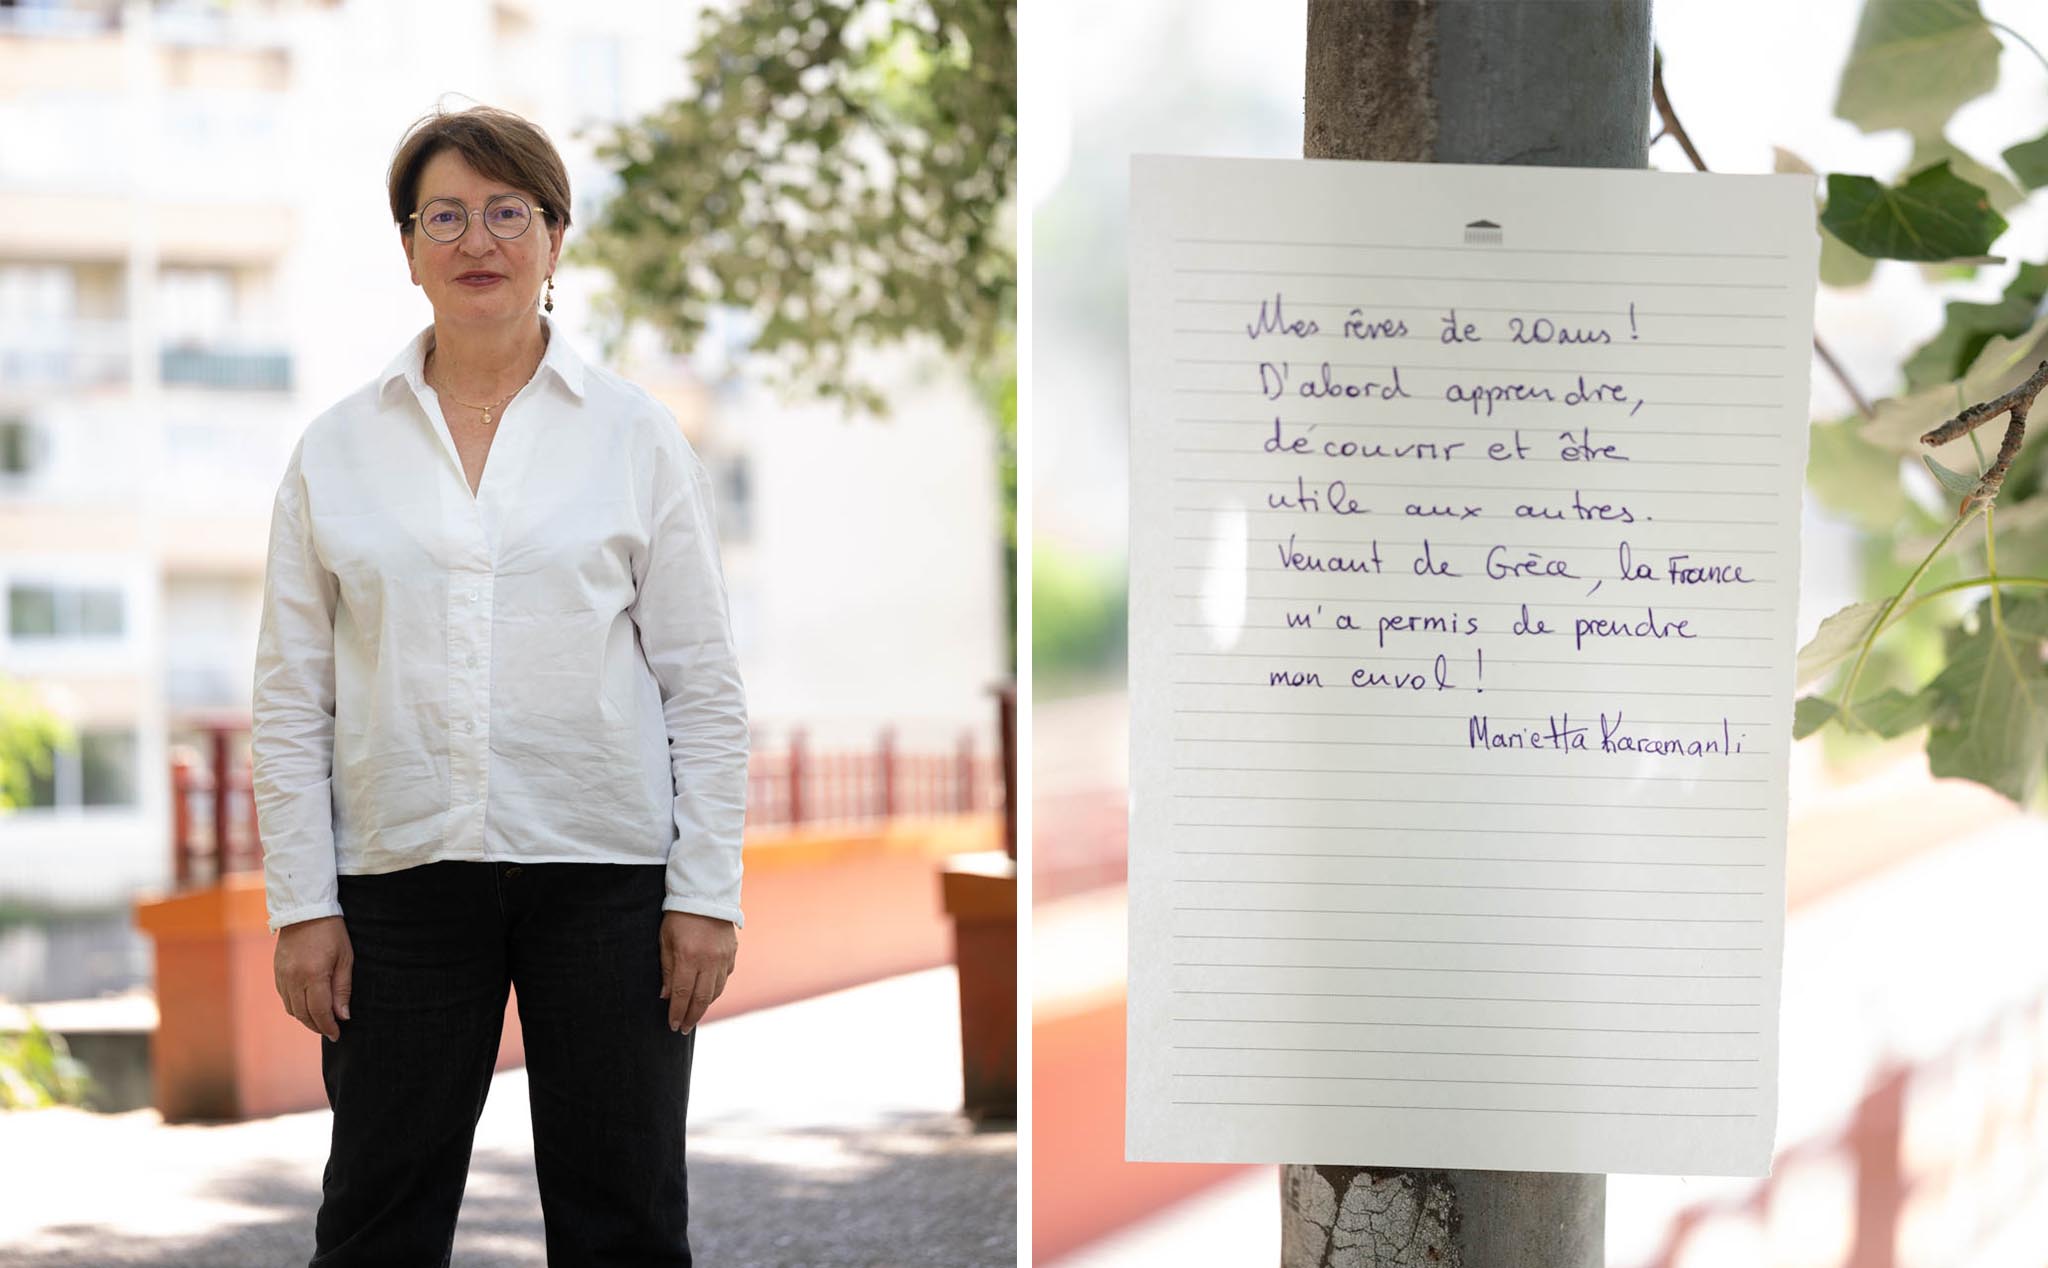 Mes rêves de 20 ans !
D'abord apprendre,
découvrir et être
utile aux autres.
Venant de Grèce, la France
m'a permis de prendre
mon envol !
Marietta Karamanli